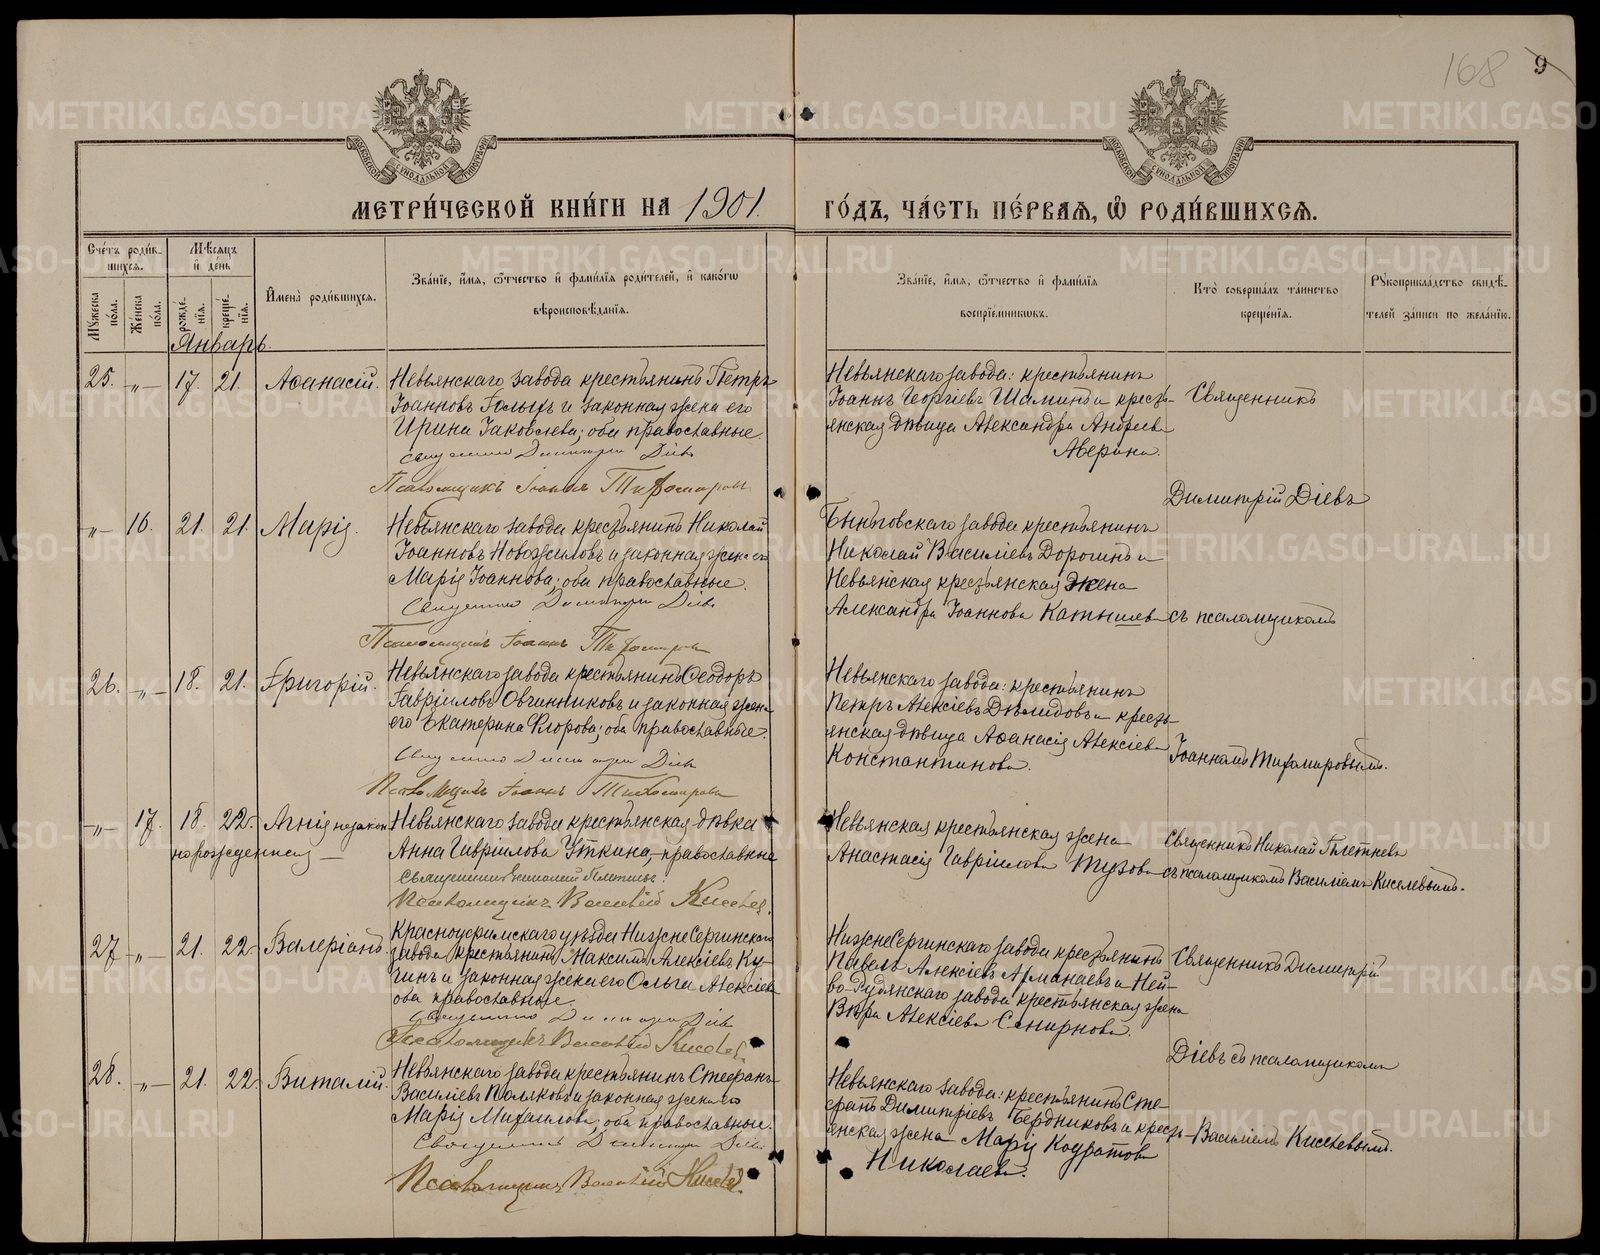 168
9
МЕТРИ́ЧЕСКОЙ КНИ́ГИ НА 1901.
ГО́ДЪ, ЧА́СТЬ ПЕ́РВАѦ, Ѡ҆ РОДИ́ВШИХСѦ.
Счéтъ роди́в-
шихсѧ.
Мꙋ́жеска по́ла.
Же́нска по́ла.
Мѣ́сѧцъ
и҆ де́нь
рожде́нїѧ.
креще́нїѧ.
И҆мена̀ роди́вшихсѧ.
Зва́нїе, и҆́мѧ, ѻ҆́тчество и҆ фами́лїѧ роди́телей, и҆ како́гѡ
вѣроисповѣ́данїѧ.
Зва́нїе, и҆́мѧ, ѻ҆́тчество и҆ фами́лїѧ
воспрїе́мникѡвъ.
Кто̀ соверша́лъ та́инство
креще́нїѧ.
Рꙋкоприкла́дство свидѣ́-
телей за́писи по жела́нїю.
Январь.
25. -„- 17. 21. Аѳанасій.
Невьянскаго завода крестьянинъ Петръ
Іоанновъ Голыхъ и законная жена его
Ирина Іаковлева; оба православные.
Священникъ Димитрій Діевъ
Псаломщикъ Іоаннъ Тихомировъ
Невьянскаго завода: крестьянинъ
Іоаннъ Георгіевъ Шаминъ и кресть-
янская дѣвица Александра Андреева
Аверина.
Священникъ
Димитрій Діевъ
съ псаломщикомъ
Іоанномъ Тихомировымъ.
-„- 16. 21. 21. Марія.
Невьянскаго завода крестьянинъ Николай
Іоанновъ Новожиловъ и законная жена его
Марія Іоаннова; оба православные.
Священникъ Димитрій Діевъ
Псаломщикъ Іоаннъ Тихомировъ
Быньговскаго завода крестьянинъ
Николай Василіевъ Дорогинъ и
Невьянская крестьянская жена
Александра Іоаннова Катышева
26. -„- 18. 21. Григорій.
Невьянскаго завода крестьянинъ Ѳеодоръ
Гавріиловъ Овчинниковъ и законная жена
его Екатерина Флорова; оба православные.
Священникъ Димитрій Діевъ
Псаломщикъ Іоаннъ Тихомировъ
Невьянскаго завода: крестьянинъ
Петръ Алексіевъ Демидовъ и кресть-
янская дѣвица Аѳанасія Алексіева
Константинова.
-„- 17. 18. 22. Агнія незакон-
норожденная —
Невьянскаго завода крестьянская дѣвка
Анна Гавріилова Уткина, православная
Священникъ Николай Плетневъ.
Псаломщикъ Василій Киселевъ.
Невьянская крестьянская жена
Анастасія Гавріилова Тузова
Священникъ Николай Плетневъ
съ псаломщикомъ Василіемъ Киселевымъ.
27. -„- 21. 22. Валеріанъ.
Красноуфимскаго уѣзда Нижне Сергинскаго
завода крестьянинъ Максимъ Алексіевъ Ку-
чинъ и законная жена его Ольга Алексіева
оба православные.
Священникъ Димитрій Діевъ
Псаломщикъ Василій Киселев.
Нижне Сергинскаго завода крестьянинъ
Павелъ Алексіевъ Арманаевъ и Ней-
во-Рудянскаго завода крестьянская жена
Вѣра Алексіева Смирнова.
Священникъ Димитрій
Діевъ съ псаломщикомъ
Василіемъ Киселевымъ.
28. -„- 21. 22. Виталій.
Невьянскаго завода крестьянинъ Стефанъ
Василіевъ Поляковъ и законная жена его
Марія Михаилова; оба православные.
Священникъ Димитрій Діевъ
Псаломщикъ Василій Киселев.
Невьянскаго завода: крестьянинъ Сте-
фанъ Димитріевъ Бердниковъ и кресть-
янская жена Марія Кодратова
Николаева.
METRIKI.GASO-URAL.RU